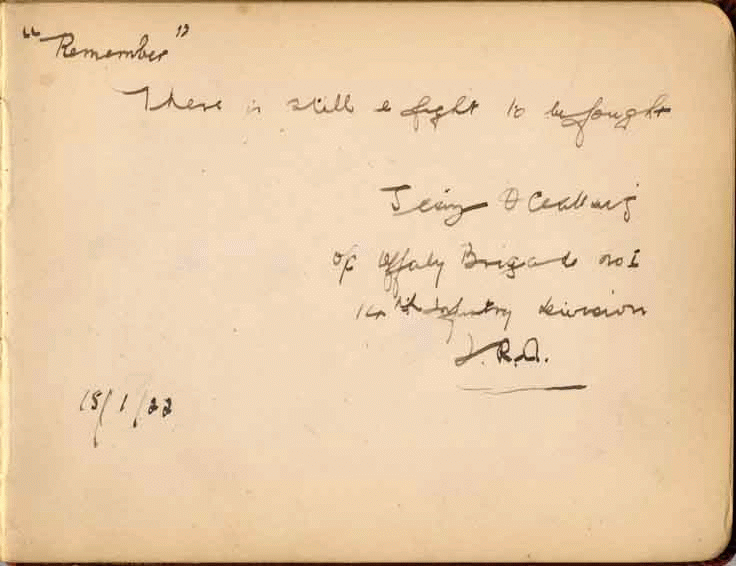 "Remember"
There is still a fight to be fought
of Offaly Brigade no I
Infantry Division
I.R.A.
15/1/22